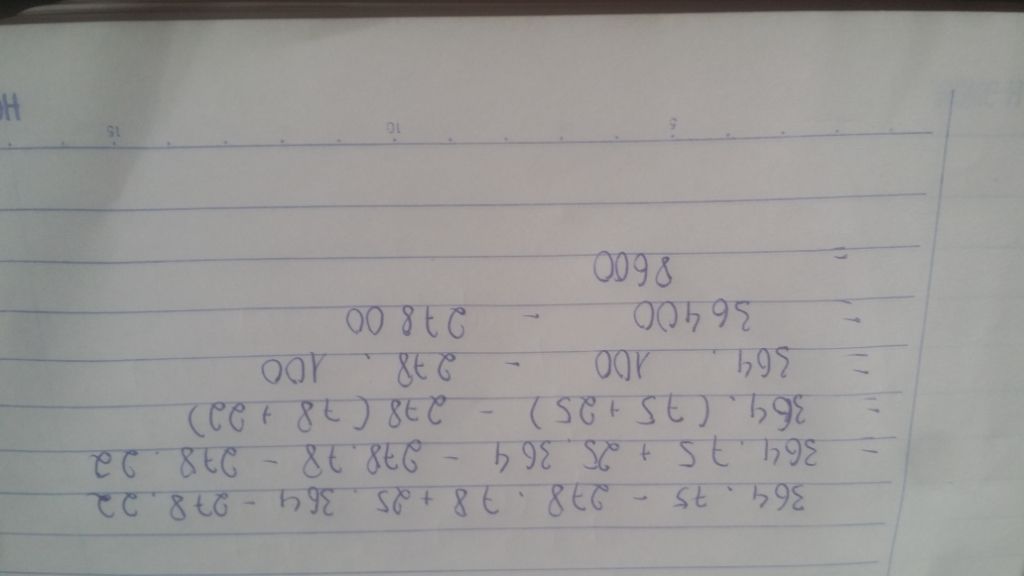 364 . 75 - 278 . 78 + 25 . 364 - 278 . 22
= 364 . 75 + 25 . 364 - 278 . 78 - 278 . 22
= 364 . (75 + 25) - 278 (78 + 22)
= 364 . 100 - 278 . 100
= 36400 - 27800
= 8600
5 10 15